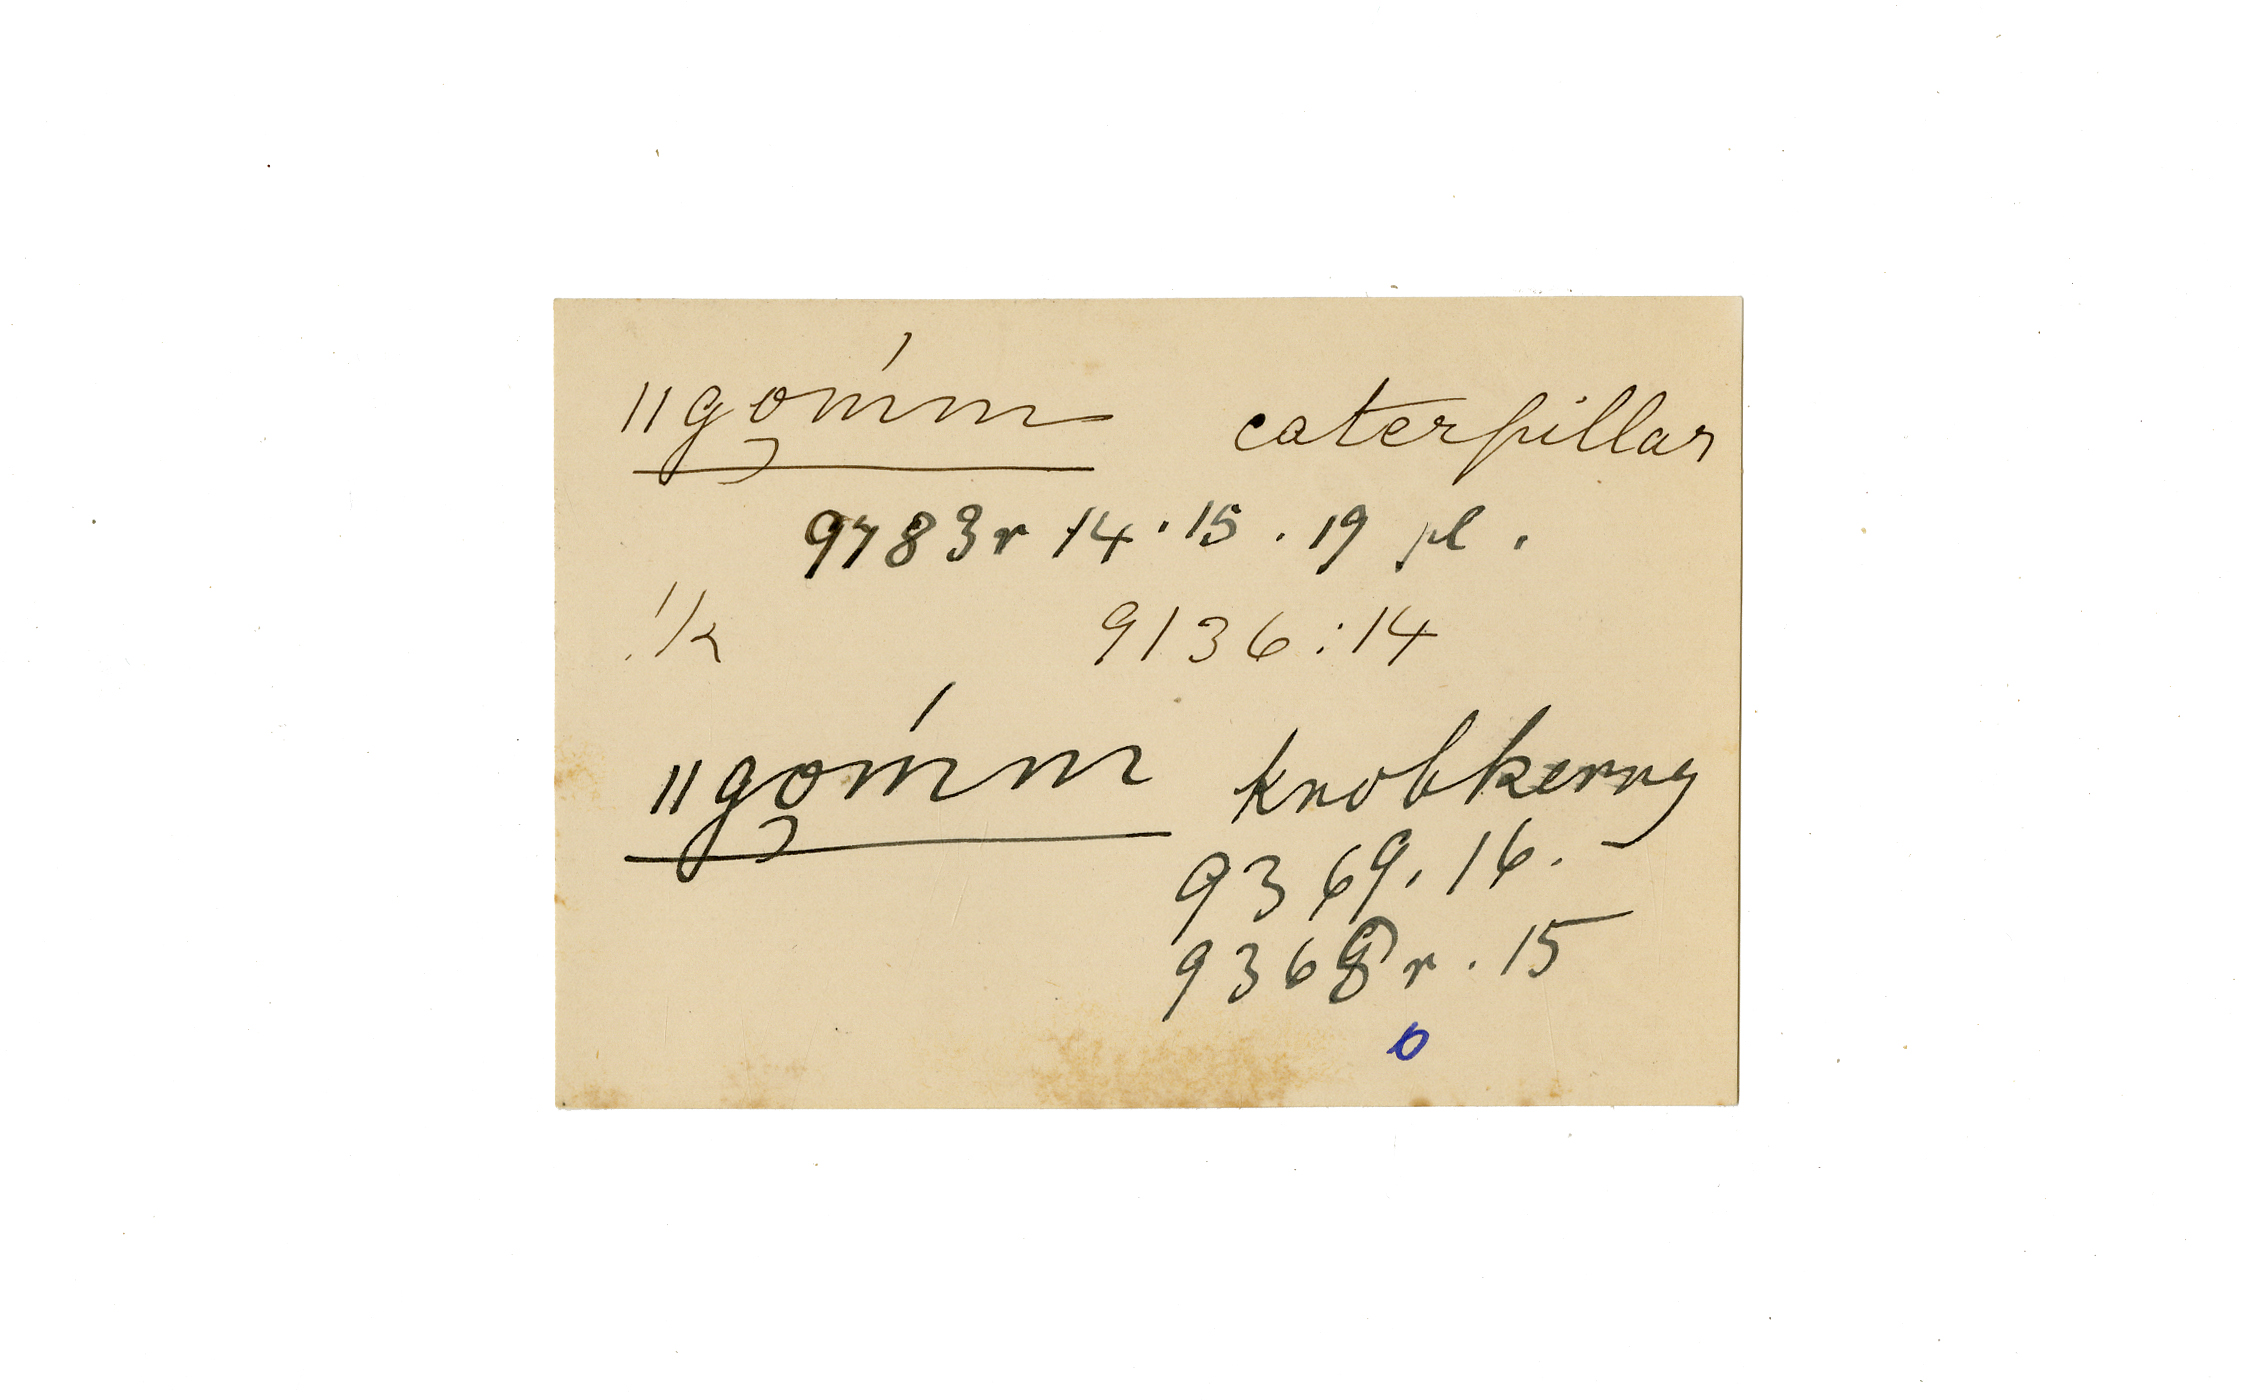 ǁgo̢ḿm caterpillar
9783r 14 . 15 . 19 pl .
!/k 9136 : 14
ǁgo̢ḿm knobkerry
9369. 16.
9368r . 15